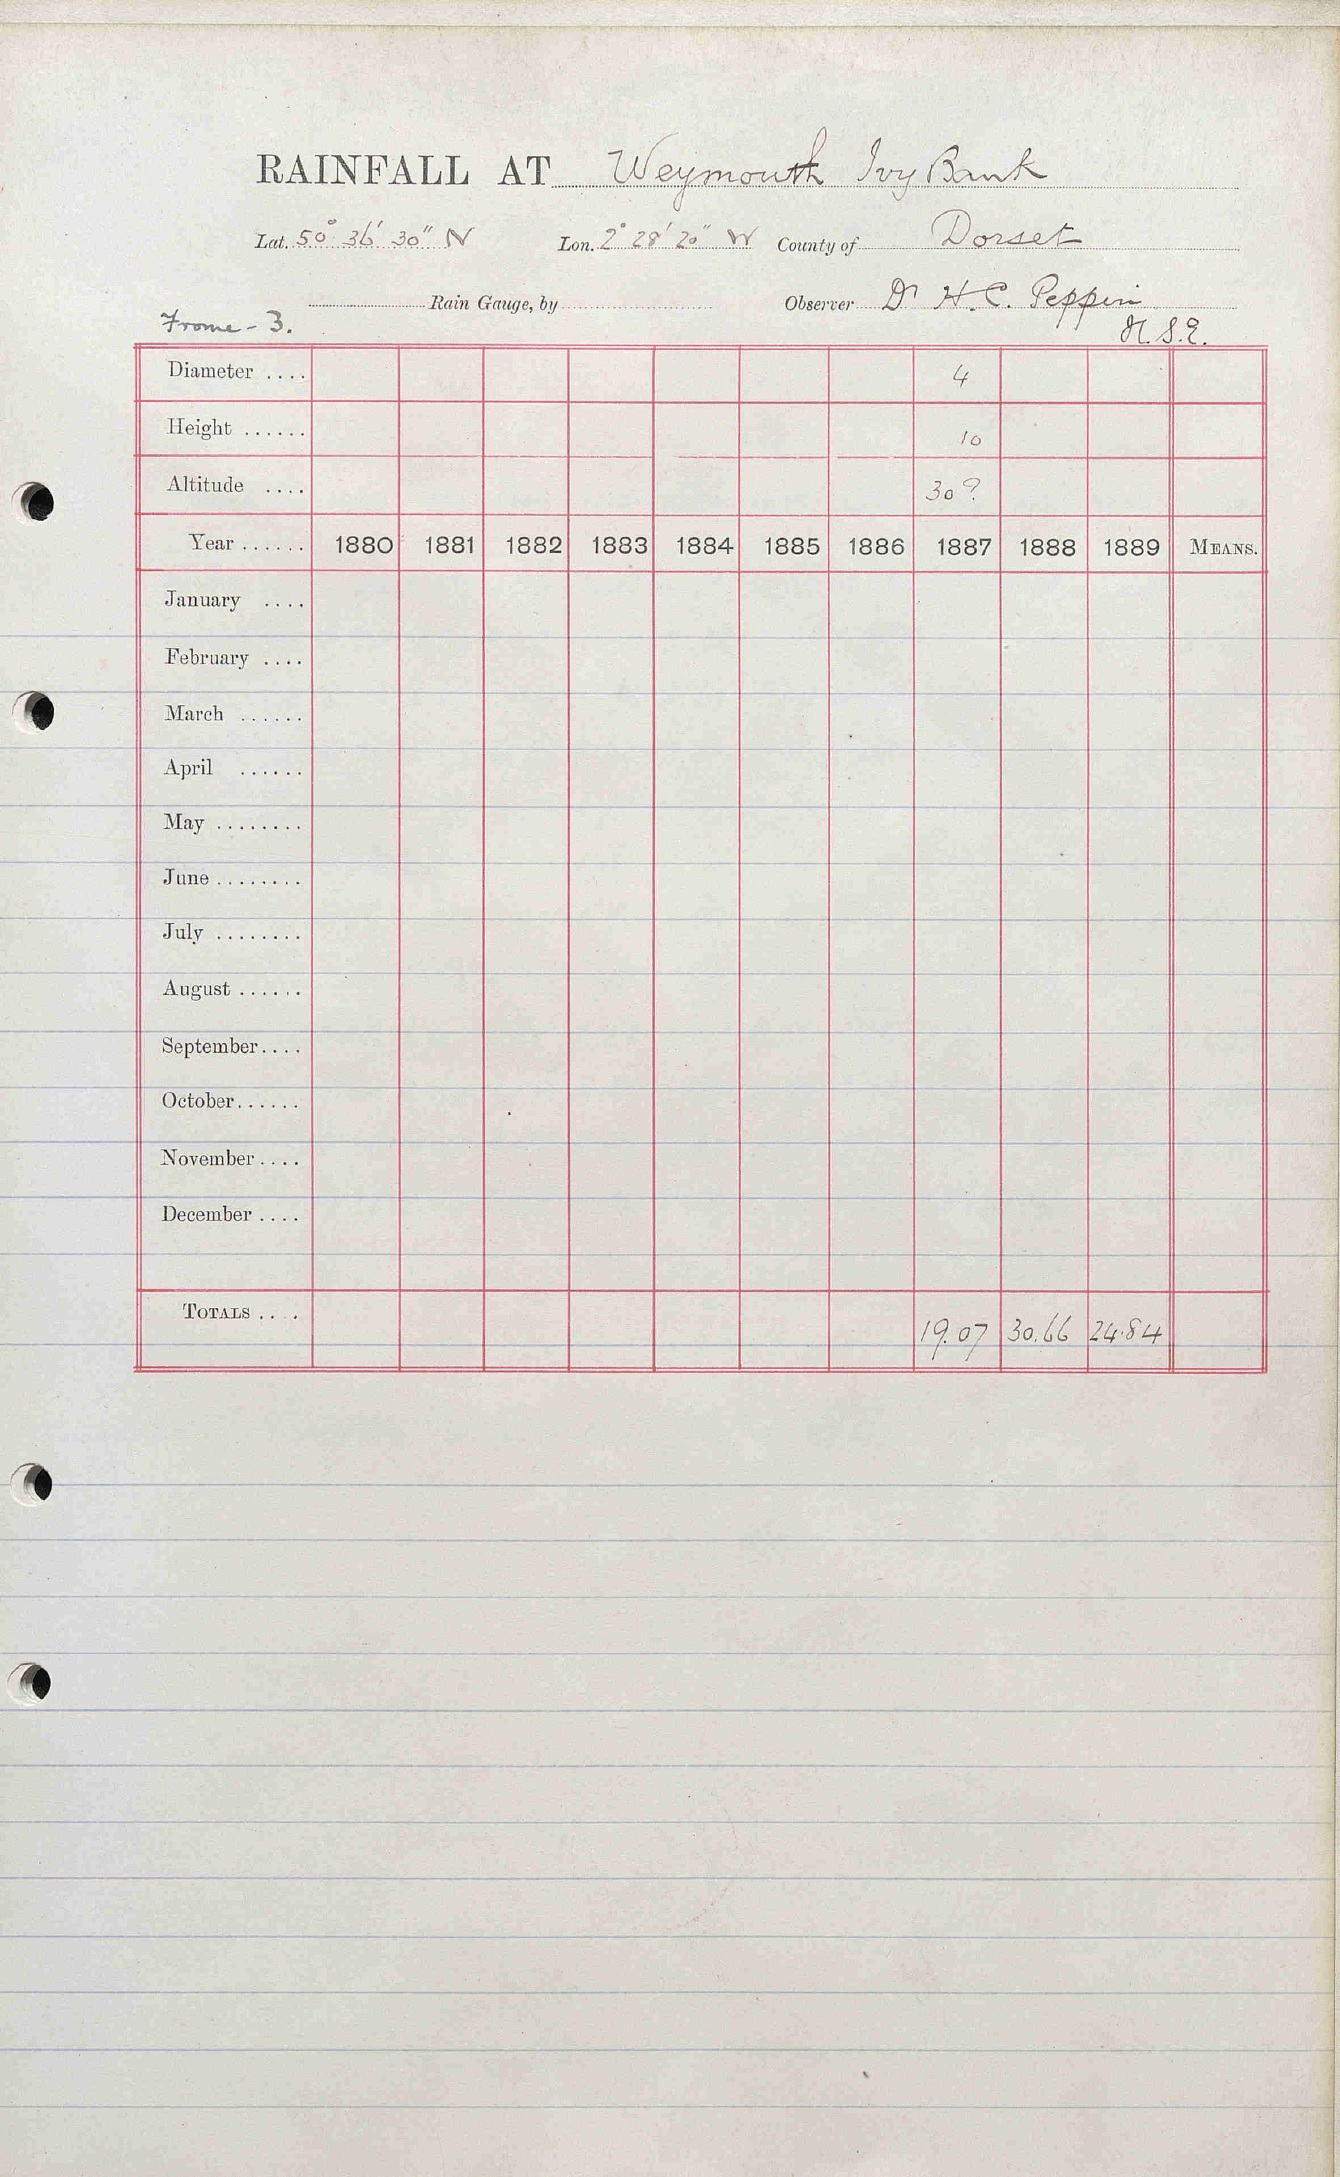 RAINFALL AT Weymouth Ivy Bank
Lat. 50° 36' 30" N Lon. 2° 28' 20" W County of Dorset
Rain Gauge, by Observer Dr H. C. Peppin
Frome - 3. H.S.E.
Diameter .... 4
Height ...... 10
Altitude .... 30?
Year ...... 1880 1881 1882 1883 1884 1885 1886 1887 1888 1889 MEANS.
January ....
February ....
March ......
April ......
May ........
June ........
July ........
August ......
September....
October......
November....
December ....
TOTALS .... 19.07 30.66 24.84